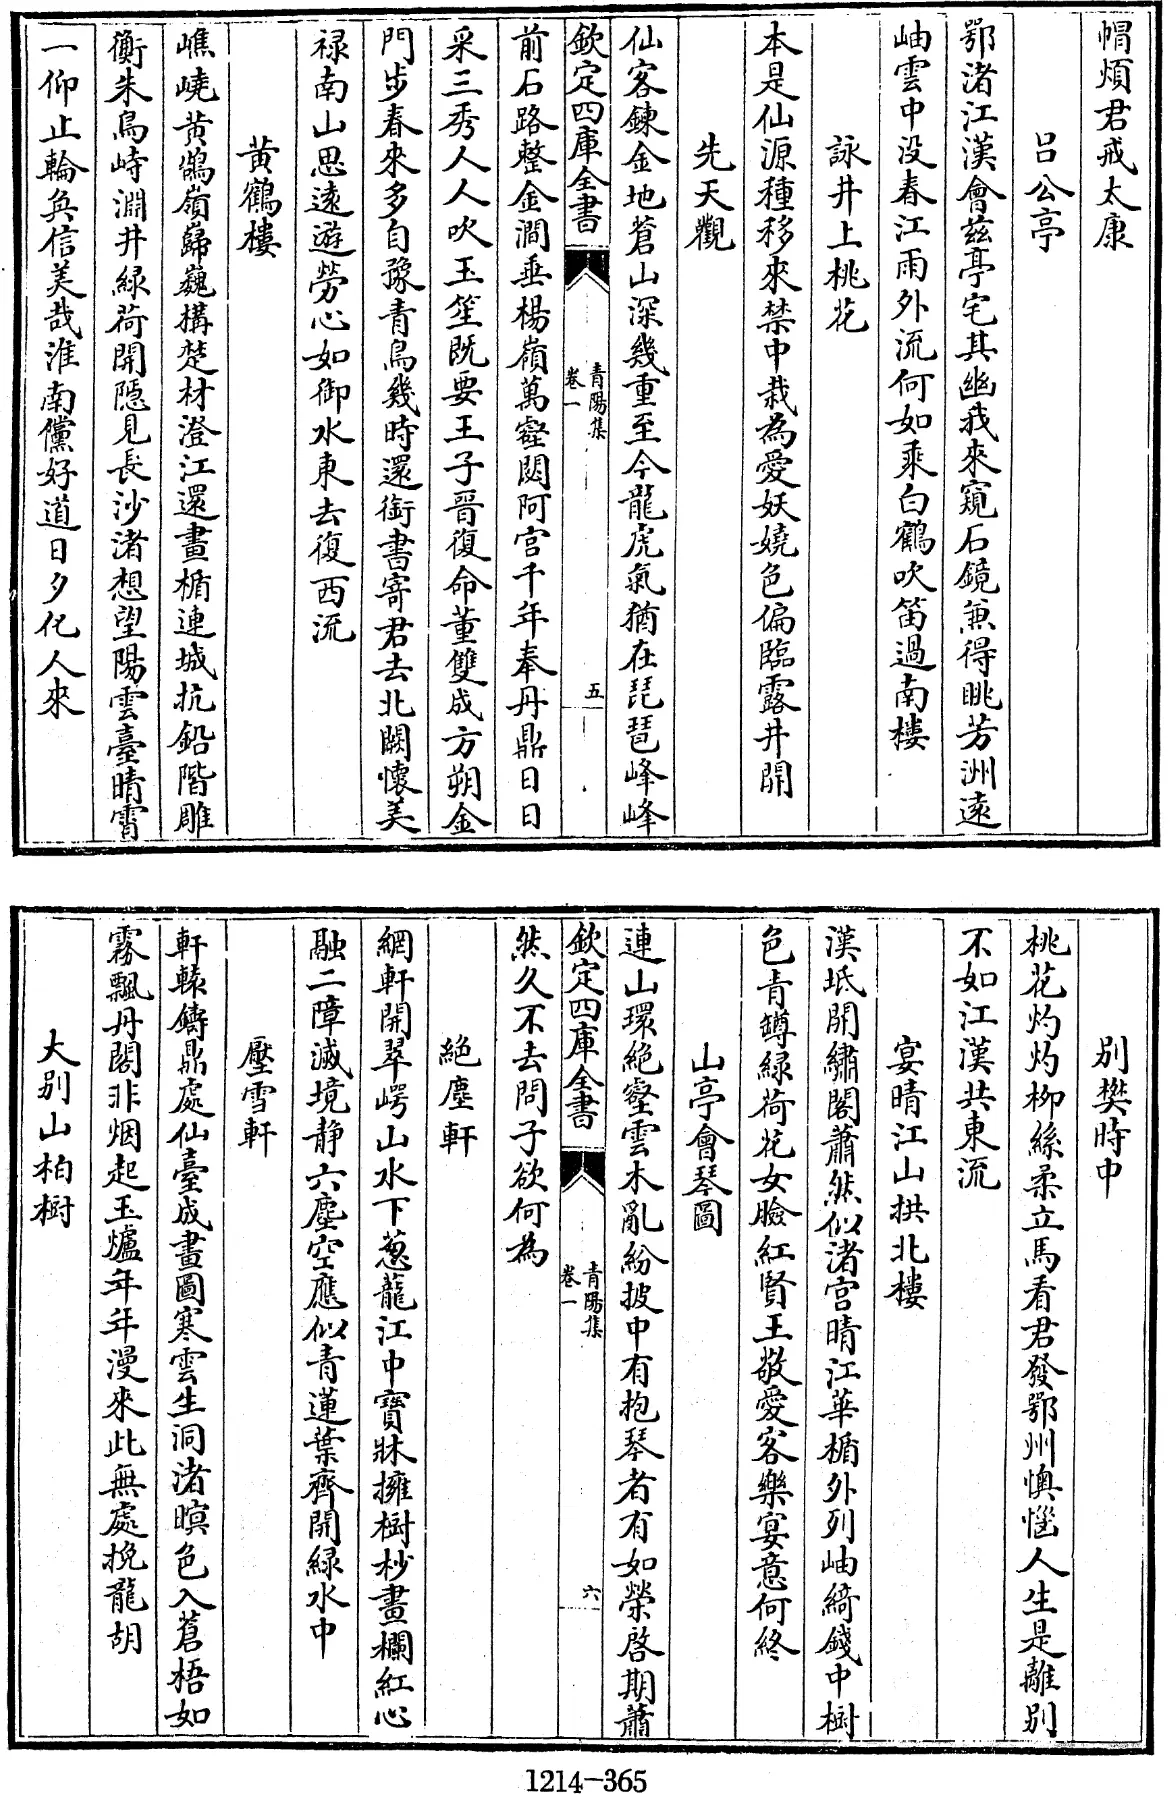 帽煩君戒太康
吕公亭
鄂渚江漢會兹亭宅其幽我來窺石鏡兼得眺芳洲遠
岫雲中没春江雨外流何如乘白鶴吹笛過南樓
詠井上桃花
本是仙源種移來禁中栽為愛妖嬈色偏臨露井開
先天觀
仙客鍊金地蒼山深幾重至今龍虎氣猶在琵琶峰峰
欽定四庫全書
青陽集
卷一
五
前石路整金澗垂楊嶺萬壑閟阿宫千年奉丹鼎日日
采三秀人人吹玉笙既要王子晉復命董雙成方朔金
門步春來多自豫青鳥幾時還銜書寄君去北闕懷美
禄南山思遠遊勞心如御水東去復西流
黄鶴樓
嶕嶢黄鵠嶺巋巍搆楚材澄江還畫楯連城抗鉛階雕
衡朱鳥峙淵井緑荷開隱見長沙渚想望陽雲臺晴霄
一仰止輪奐信美哉淮南儻好道日夕化人來
別樊時中
桃花灼灼柳絲柔立馬看君發鄂州懊惱人生是離别
不如江漢共東流
宴晴江山拱北樓
漢坻開繡閣蕭然似渚宫晴江華楯外列岫綺錢中樹
色青罇緑荷花女臉紅賢王敬愛客樂宴意何終
山亭會琴圖
連山環絶壑雲木亂紛披中有抱琴者有如榮啓期蕭
欽定四庫全書
青陽集
卷一
六
然久不去問子欲何為
絶塵軒
網軒開翠崿山水下葱蘢江中寶牀擁樹杪畫欄紅心
融二障滅境静六塵空應似青蓮葉齊開緑水中
壓雪軒
軒轅鑄鼎處仙臺成畫圖寒雲生洞渚暝色入蒼梧如
霧飄丹閣非烟起玉爐年年漫來此無處挽龍胡
大别山柏樹
1214-365